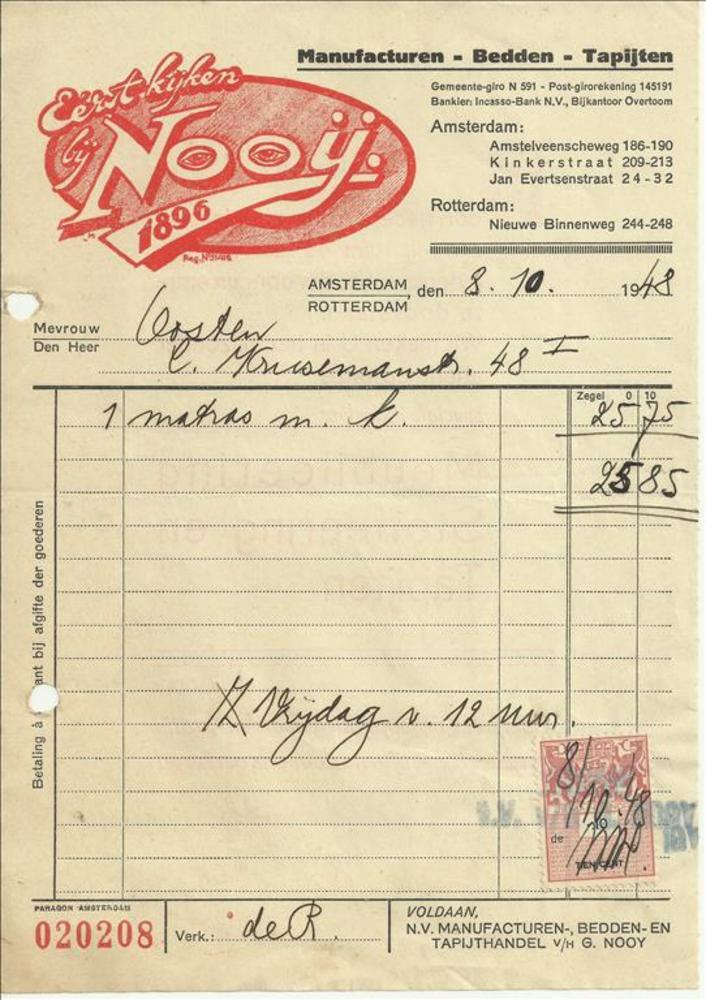 Manufacturen - Bedden - Tapijten
Eerst kijken
bij
Nooij.
1896
Gemeente-giro N 591 - Post-girorekening 145191
Bankier: Incasso-Bank N.V., Bijkantoor Overtoom
Amsterdam:
Amstelveenscheweg 186-190
Kinkerstraat 209-213
Jan Evertsenstraat 24-32
Rotterdam:
Nieuwe Binnenweg 244-248
AMSTERDAM
ROTTERDAM
, den 8. 10. 1948
Mevrouw
Den Heer
Oosten
C. Krusemanstr. 48 I
Zegel 0 10
1 matras m. k. 25 75
25 85
Betaling à ant bij afgifte der goederen
Vrijdag v. 12 uur.
8/10.48
10
de
TIEN CENT
PARAGON AMSTERDAM
020208
Verk.: de R.
VOLDAAN,
N.V. MANUFACTUREN-, BEDDEN- EN
TAPIJTHANDEL v/H G. NOOY